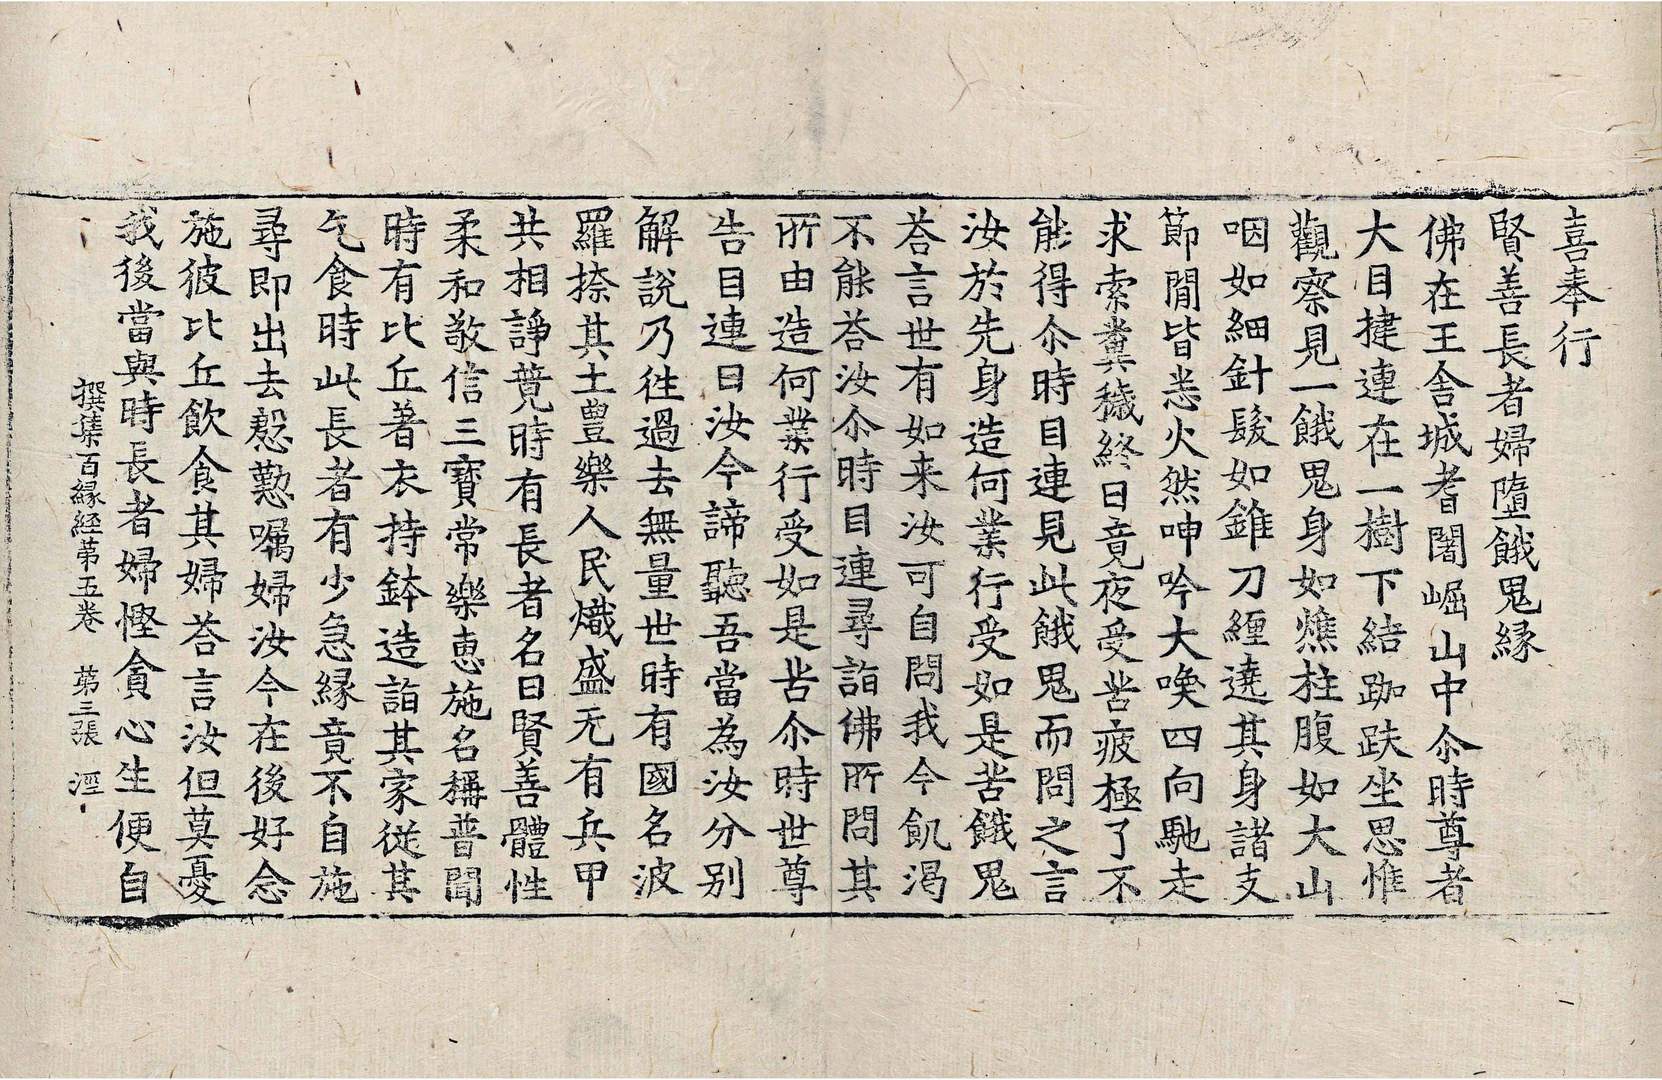 喜奉行
賢善長者婦墮餓鬼縁
佛在王舍城耆闍崛山中尒時尊者
大目揵連在一樹下結跏趺坐思惟
觀察見一餓鬼身如燋柱腹如大山
咽如細針髮如錐刀纒遶其身諸支
節閒皆悉火然呻吟大喚四向馳走
求索糞穢終日竟夜受苦疲極了不
能得尒時目連見此餓鬼而問之言
汝於先身造何業行受如是苦餓鬼
荅言世有如来汝可自問我今飢渇
不能荅汝尒時目連尋詣佛所問其
所由造何業行受如是苦尒時世尊
告目連曰汝今諦聽吾當為汝分別
解說乃徃過去無量世時有國名波
羅㮈其土豊樂人民熾盛无有兵甲
共相諍競時有長者名曰賢善體性
柔和敬信三寶常樂惠施名稱普聞
時有比丘著衣持鉢造詣其家從其
乞食時此長者有少急縁竟不自施
尋即出去慇懃嘱婦汝今在後好念
施彼比丘飲食其婦荅言汝但莫憂
我後當與時長者婦慳貪心生便自
撰集百縁経苐五卷 苐三張 涇